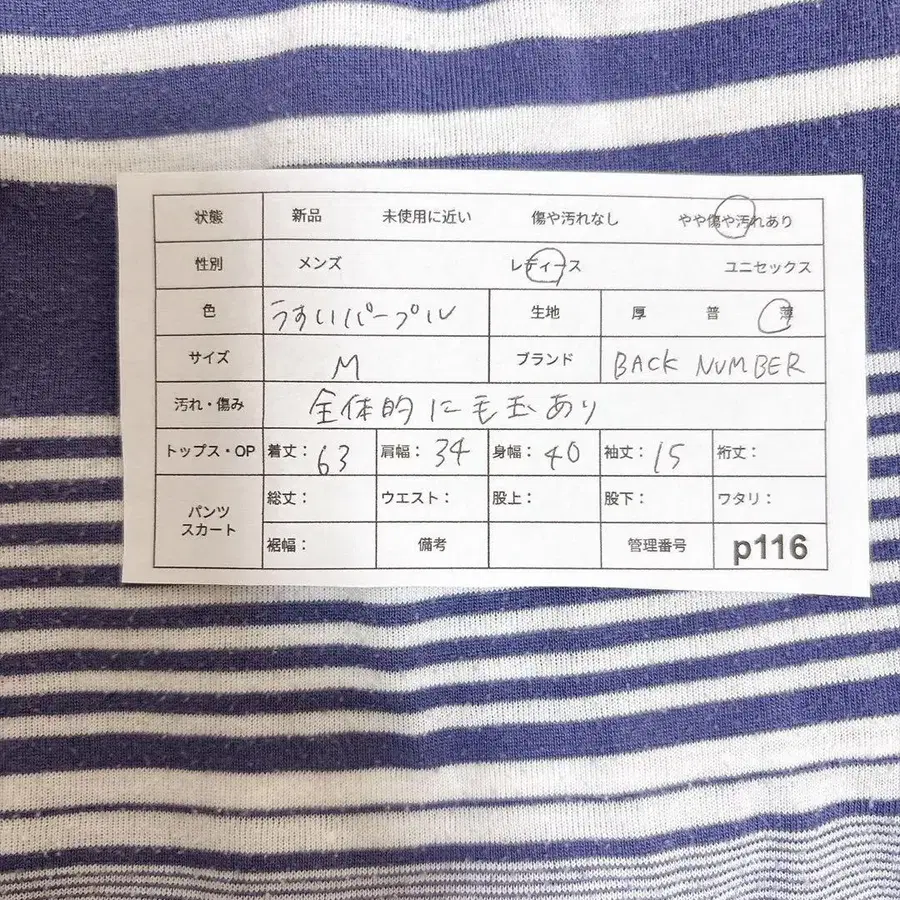 状態 新品 未使用に近い 傷や汚れなし やや傷や汚れあり
性別 メンズ レディース ユニセックス
色 うすいパープル 生地 厚 普 薄
サイズ M ブランド BACK NUMBER
汚れ・傷み 全体的に毛玉あり
トップス・OP 着丈: 63 肩幅: 34 身幅: 40 袖丈: 15 裄丈:
パンツ スカート 総丈: ウエスト: 股上: 股下: ワタリ:
裾幅: 備考 管理番号 p116